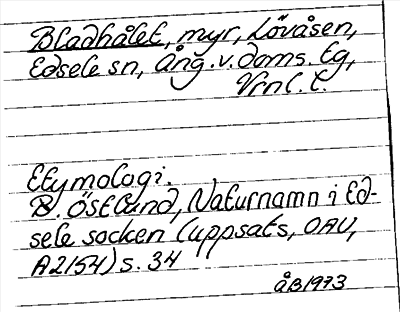 Bladhålet, myr, Lövåsen,
Edsele sn, Ång. v. doms. tg,
Vrnl. t.
Etymologi.
B. Östlund, Naturnamn i Ed-
sele socken (uppsats, OAU,
A2154) s. 34
ÅB1973